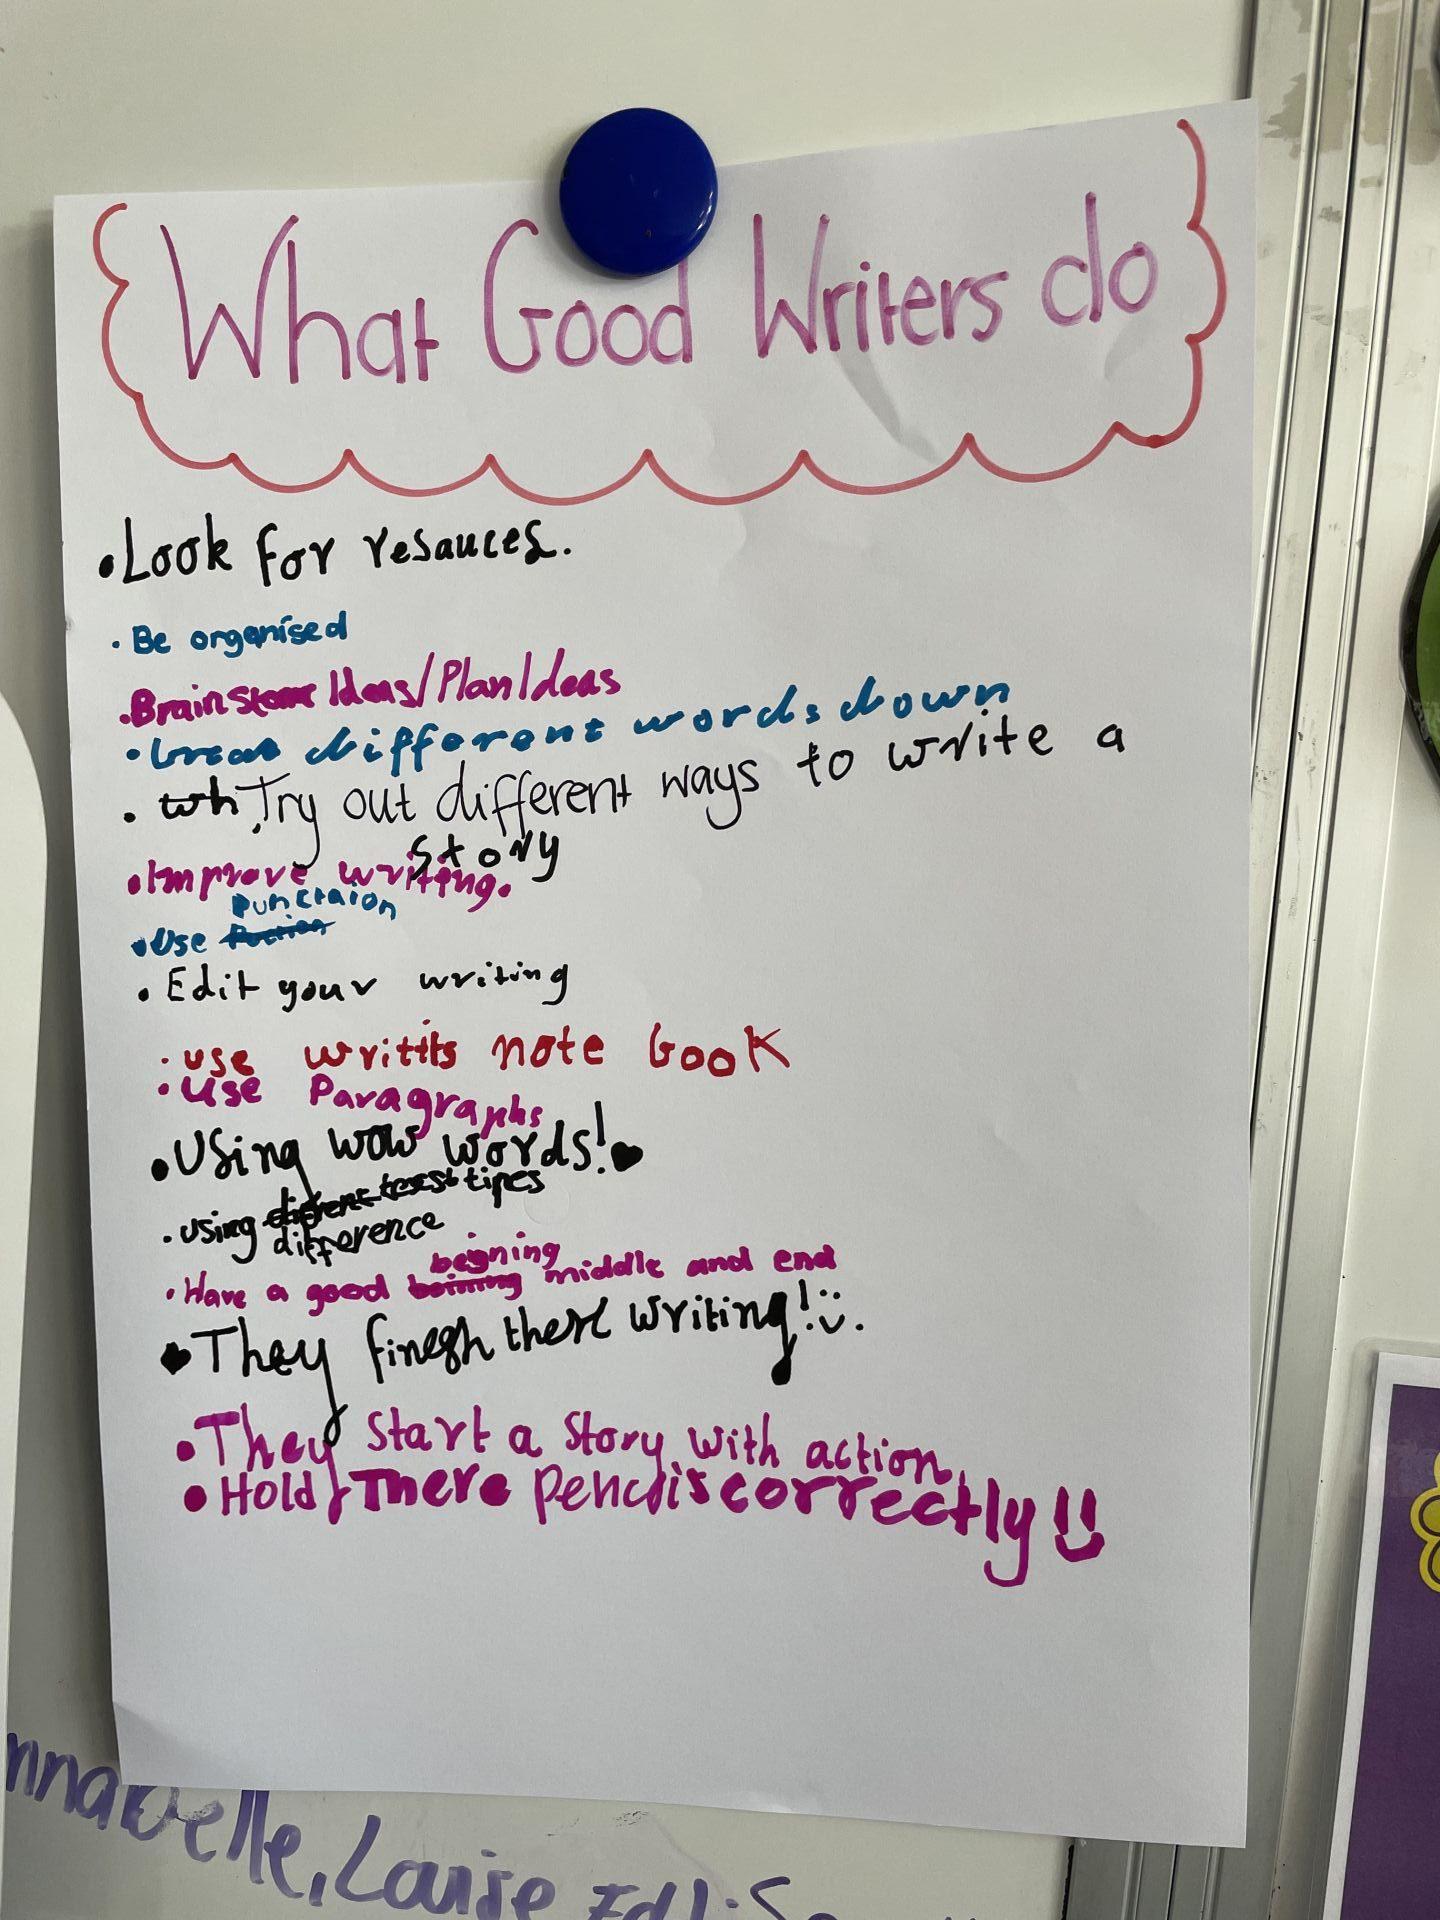 What Good Writers do
• Look for resauces.
• Be organised
• Brainstorm Ideas/Plan Ideas
• break different words down
• wh Try out different ways to write a
story
• Improve writing.
Punctaion
• Use
• Edit your writing
• use writits note book
• Use Paragraphs
• Using wow words!
• using different text tipes
difference
beigning
• Have a good middle and end
They finegh there writing!
• They start a story with action
• Hold There pencils correctly!!
nnabelle, Louise